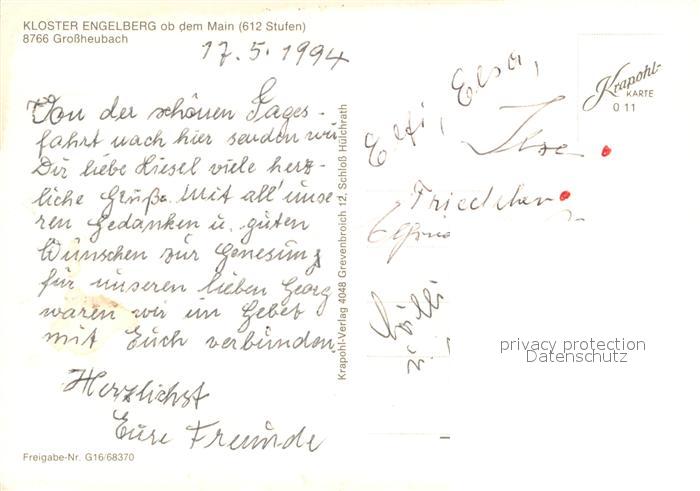 KLOSTER ENGELBERG ob dem Main (612 Stufen)
8766 Großheubach
17.5.1994
Von der schönen Tages-
fahrt nach hier senden wir
Dir liebe Hiesel viele herz-
liche Grüße. Mit all' unse-
ren Gedanken u. guten
Wünschen zur Genesung
für unseren lieben Georg
waren wir im Gebet
mit Euch verbunden.
Herzlichst
Eure Freunde
Freigabe-Nr. G16/68370
Krapohl-Verlag 4048 Grevenbroich 12, Schloß Hülchrath
Elfi, Elsa,
Ilse
Friedchen
u.
Krapohl-
KARTE
O 11
privacy protection
Datenschutz